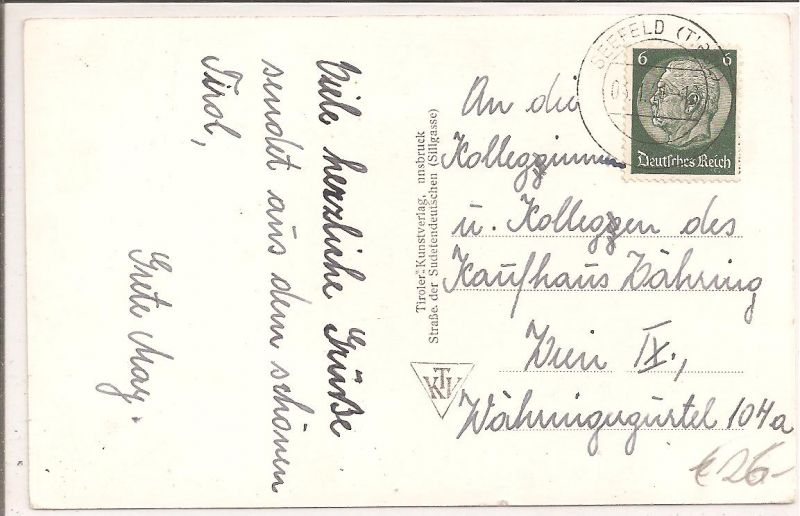 Viele herzliche Grüße
sendet aus dem schönen
Tirol,
Grete May.
Tiroler Kunstverlag, nnsbruck
Straße der Sudetendeutschen (Sillgasse)
KTV
SEEFELD (TIROL)
6 6
Deutsches Reich
An die
Kolleginnen
u. Kollegen des
Kaufhaus Währing
Wien IX.,
Währingergürtel 104a
€ 26-